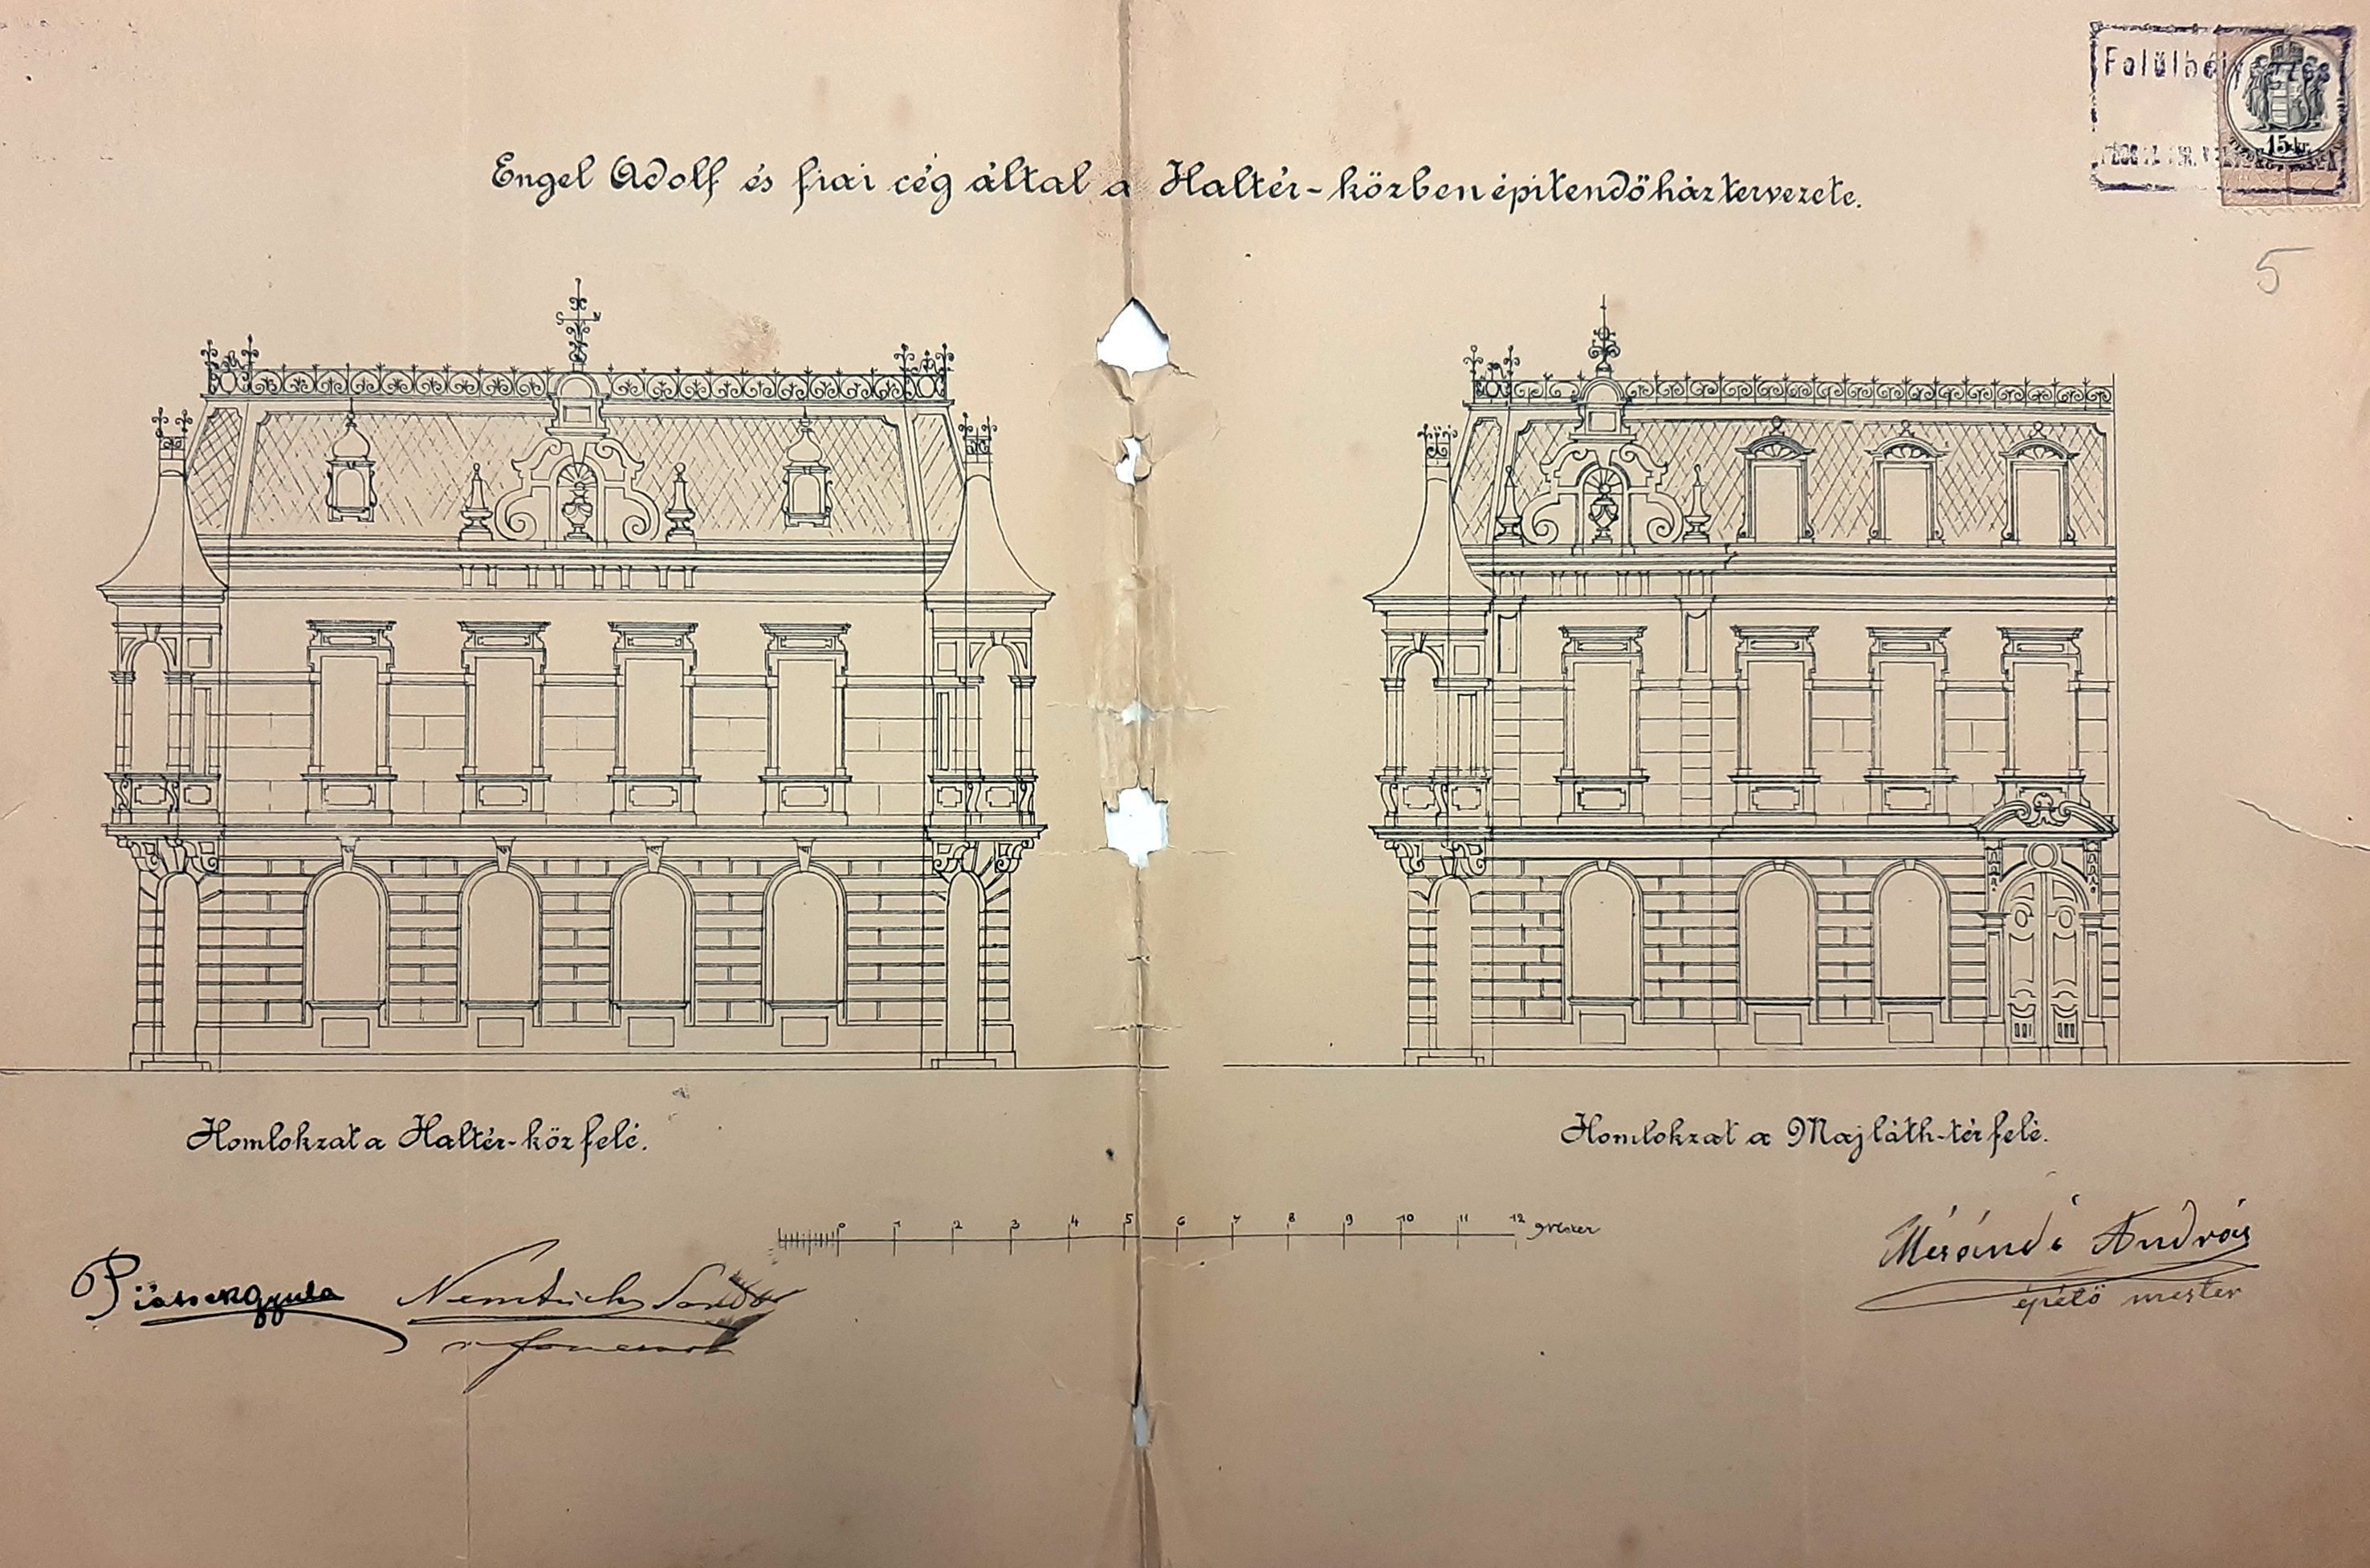 Engel Adolf és fiai cég által a Haltér-közben épitendő ház tervezete.
15 kr.
5
Homlokzat a Haltér-köz felé.
Homlokzat a Majláth-tér felé.
0 1 2 3 4 5 6 7 8 9 10 11 12 méter
Gyula
Sándor
András
építő mester